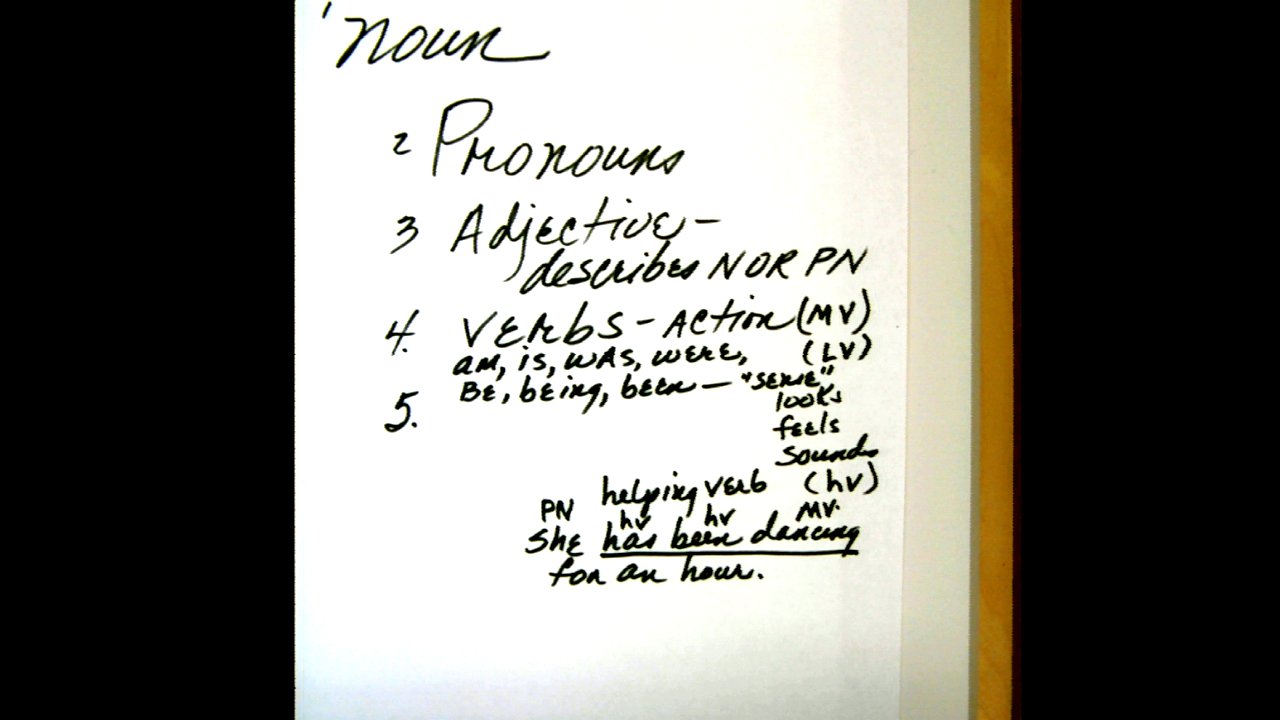 1 Noun
2 Pronouns
3 Adjective -
describes N OR PN
4. VERBS - ACTION (MV)
AM, is, WAS, WERE, (LV)
BE, being, been — "SENSE"
5. looks
feels
sounds
helping VERB (hv)
PN hv hv MV.
SHE has been dancing
for an hour.